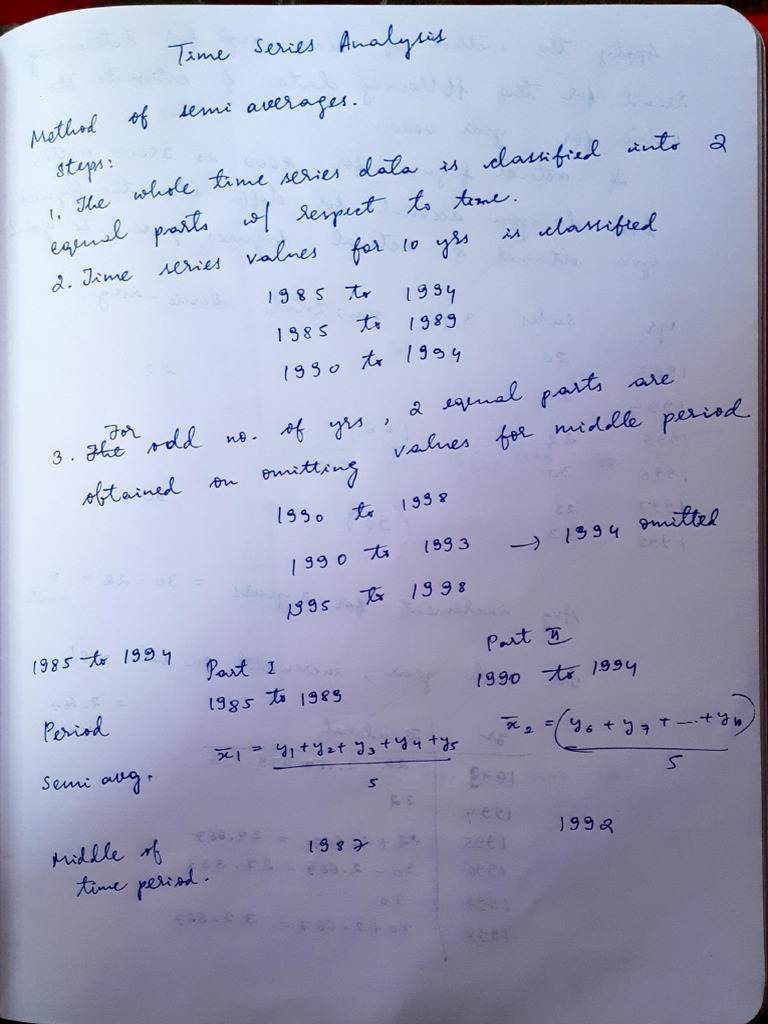 Time Series Analysis
Method of semi averages.
Steps:
1. The whole time series data is classified into 2
equal parts w/ respect to time.
2. Time series values for 10 yrs is classified
1985 to 1994
1985 to 1989
1990 to 1994
3. The For odd no. of yrs, 2 equal parts are
obtained on omitting values for middle period.
1990 to 1998
1990 to 1993 → 1994 omitted
1995 to 1998
1985 to 1994 Part I Part II
Period 1985 to 1989 1990 to 1994
Semi avg. x̄1 = y1+y2+y3+y4+y5 / 5 x̄2 = (y6 + y7 + ... + y10) / 5
Middle of 1987 1992
time period.